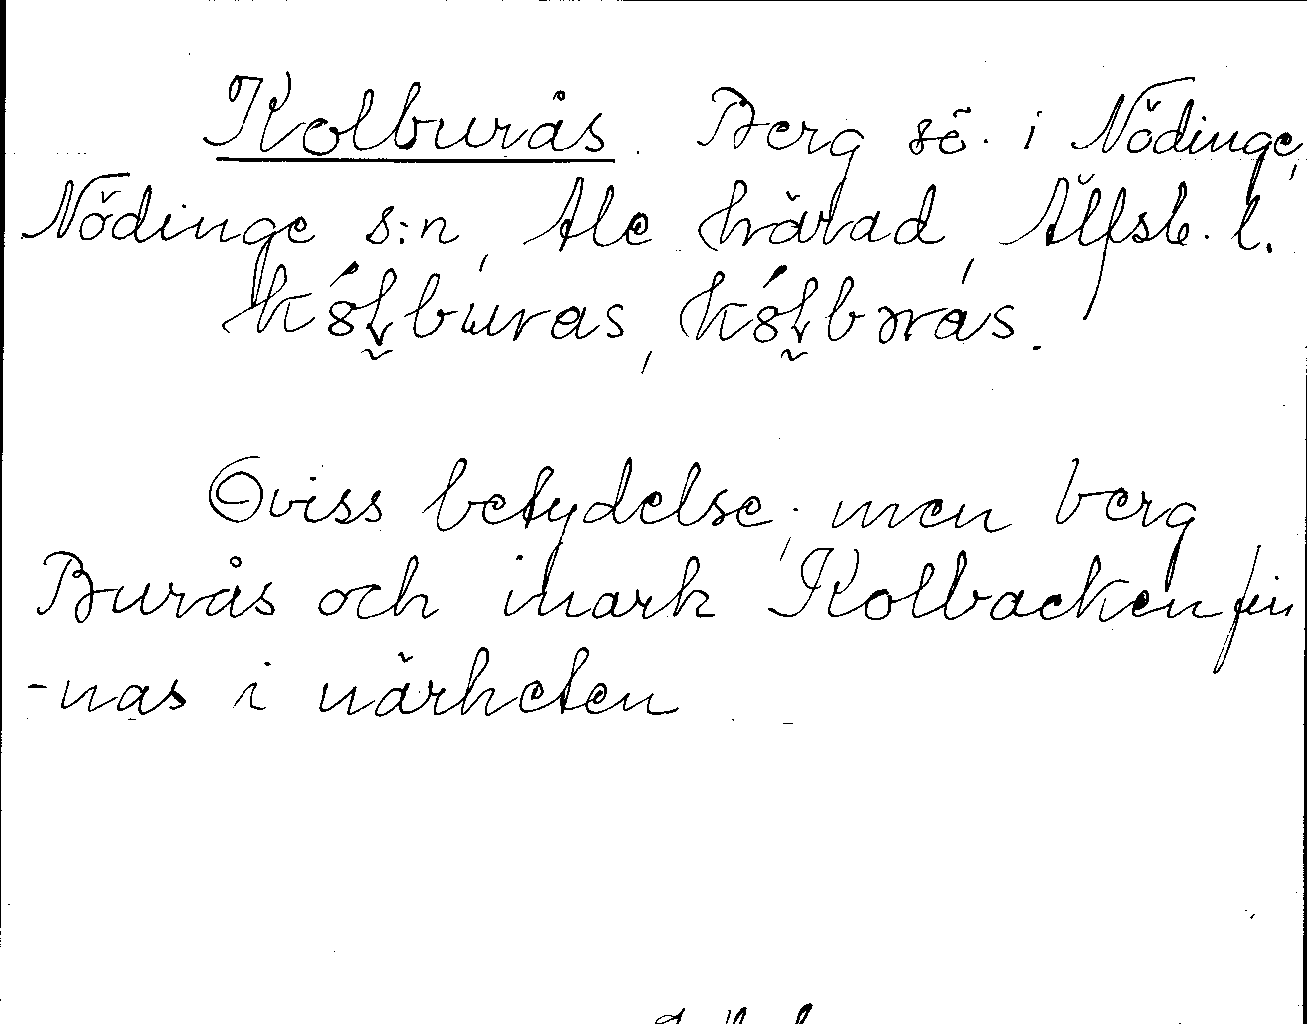 Kolburås. Berg sö. i Nödinge,
Nödinge s:n, Ale härad, Älfsb. l.
Oviss betydelse; men berg
Burås och inmark Kolbacken fin
-nas i närheten